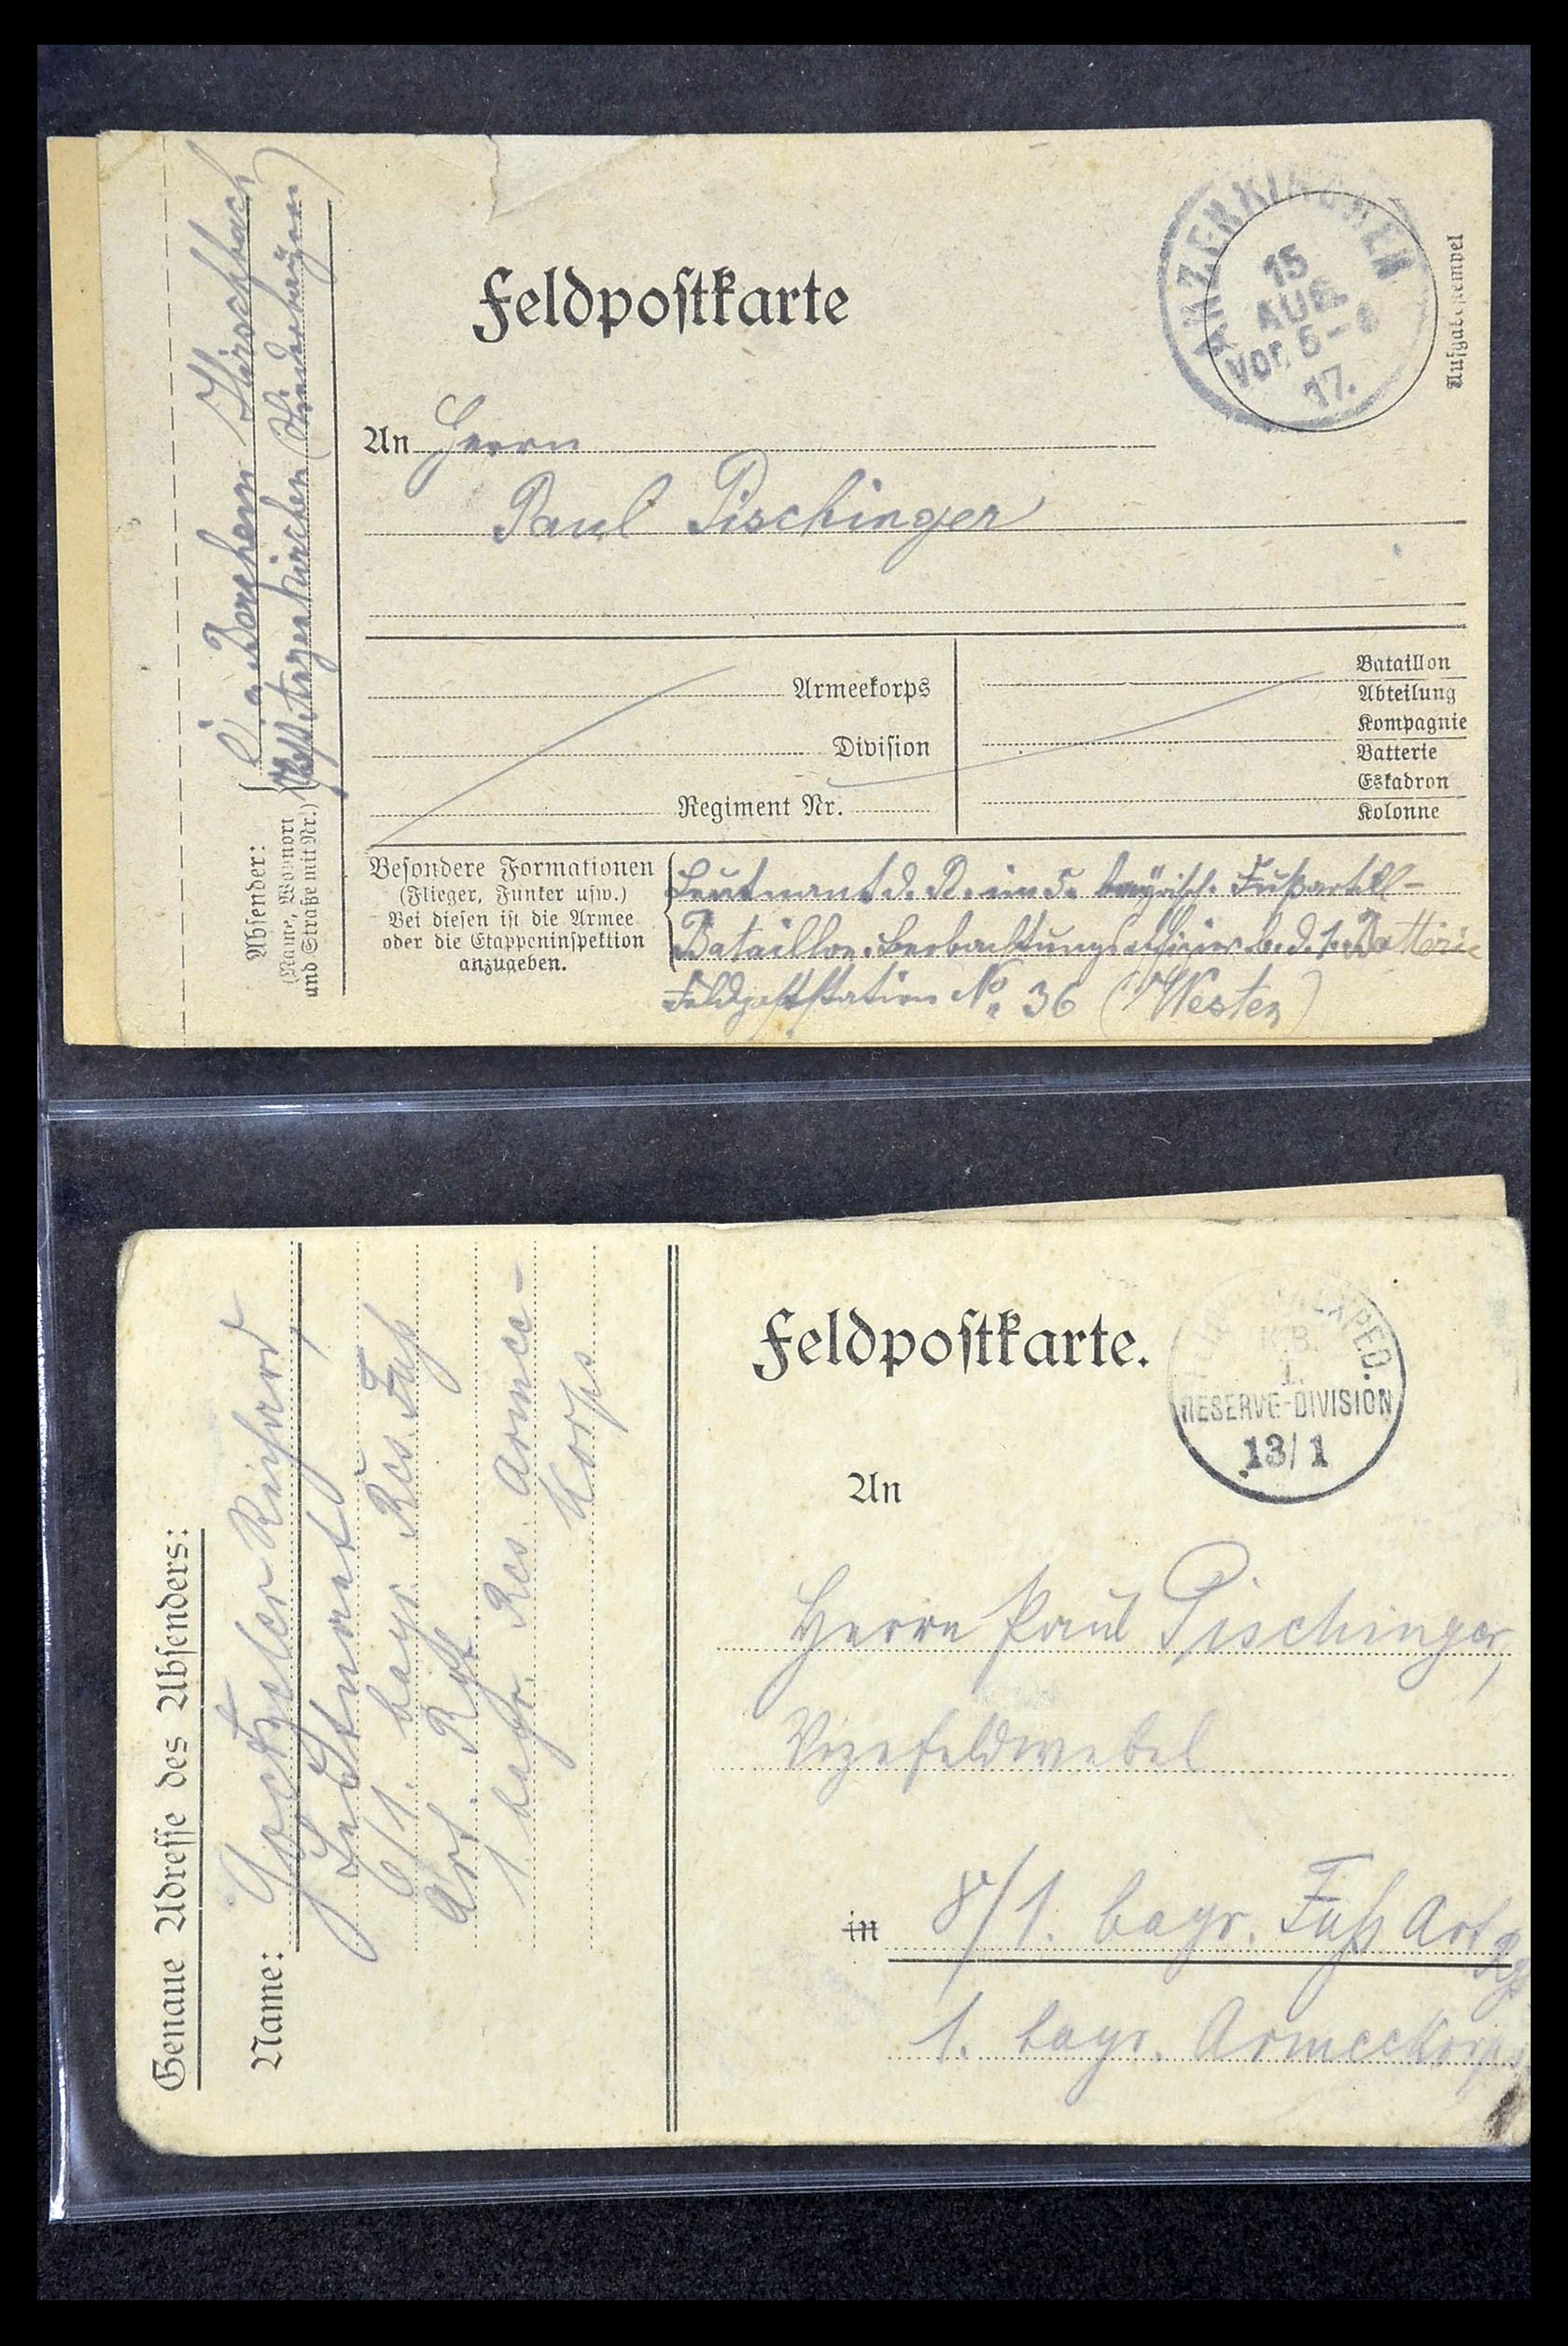 Feldpostkarte
ANZENKIRCHEN
15
AUG.
Vor. 5-6
17.
Aufgabestempel
An Herrn
Paul Pischinger
Armeekorps
Division
Regiment Nr.
Bataillon
Abteilung
Kompagnie
Batterie
Eskadron
Kolonne
Besondere Formationen
(Flieger, Funker usw.)
Bei diesen ist die Armee
oder die Etappeninspektion
anzugeben.
Leutnant d. R. im 5. bayrisch. Fußartill-
Bataillon. Beobachtungsoffizier b. d. 1. Batterie
Feldpoststation No. 36 (Westen)
Absender:
(Name, Wohnort
und Straße mit Nr.)
Hirschbach
Post Anzenkirchen (Niederbayern)
Feldpostkarte.
EXPED.
K.B.
1.
RESERVE-DIVISION
13/1
An
Herrn Paul Pischinger,
Vizefeldwebel
in 8/1. bayr. Fuß Art Rgt
1. bayr. Armeekorps
Genaue Adresse des Absenders:
Name: Richard,
Leutnant
6/1. bayr. Res. Fuß
Art. Rgt.
1. bayr. Res. Armee-
Korps